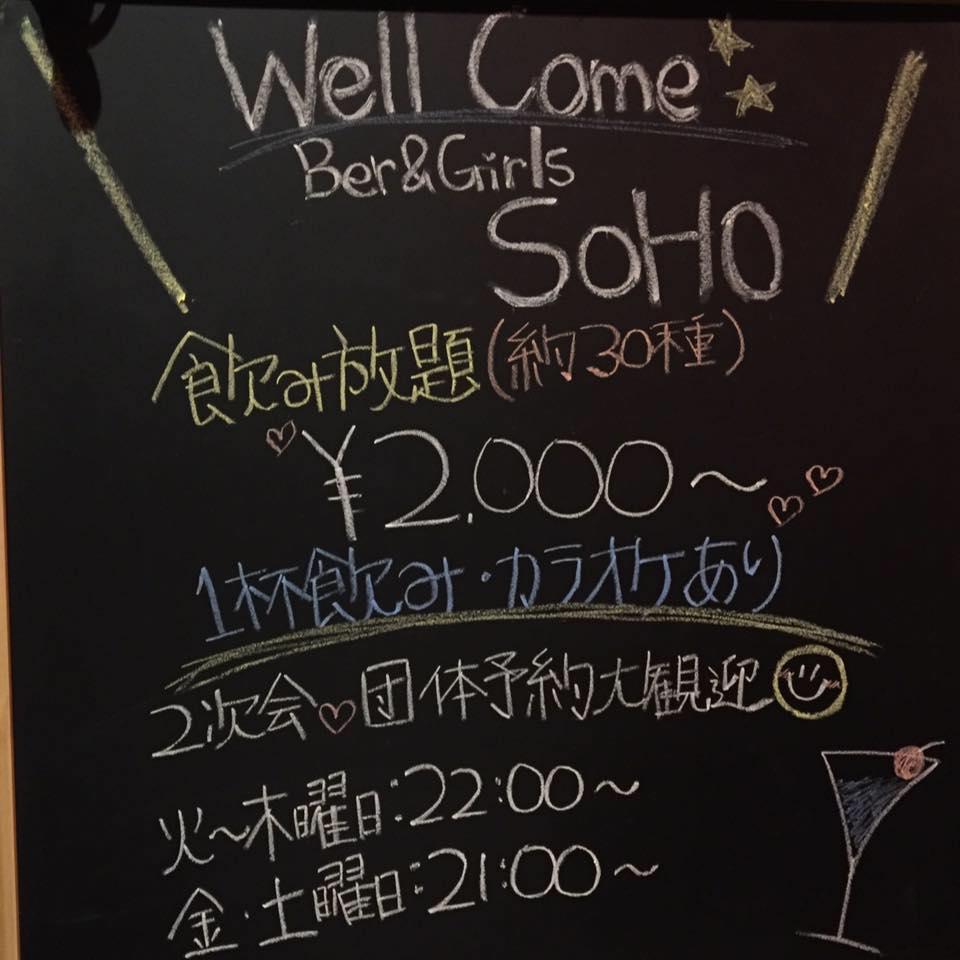 Well Come
Ber&Girls
SoHo
飲み放題(約30種)
¥2.000~
1杯飲み・カラオケあり
2次会♡団体予約大観迎
火~木曜日:22:00~
金・土曜日:21:00~